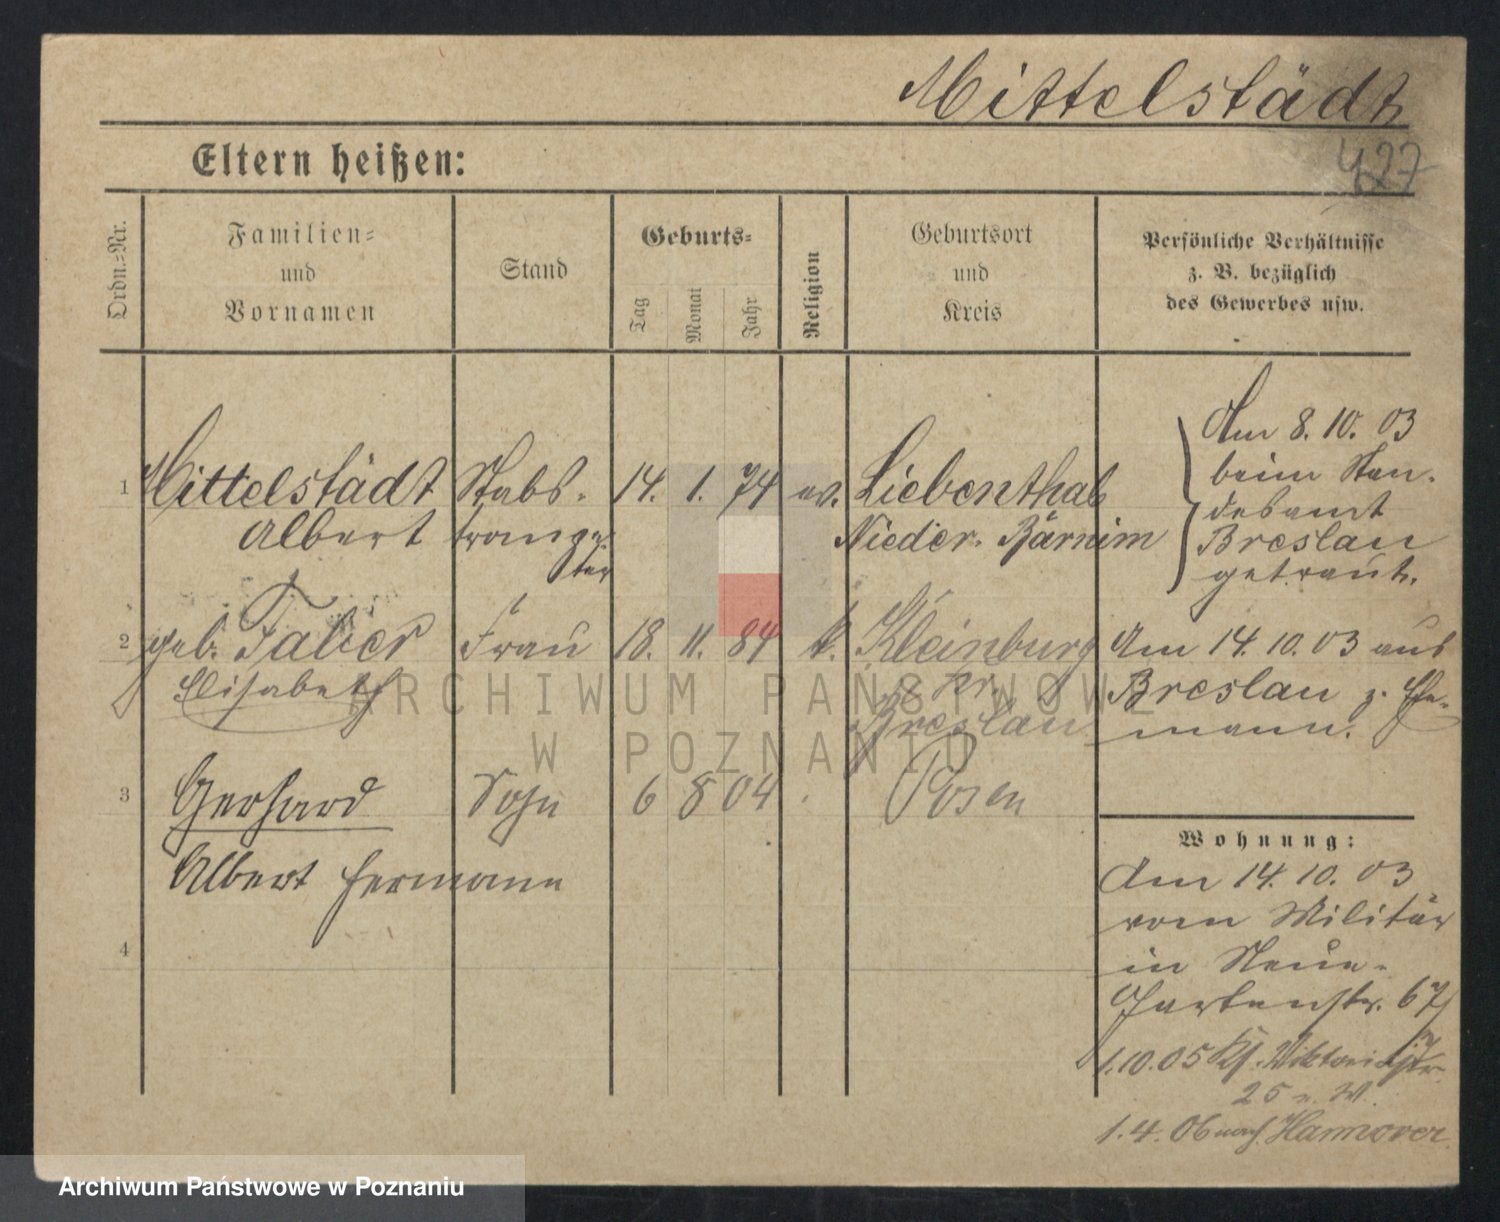 Mittelstädt
Eltern heißen:
427
Ordn.=Nr.
Familien=
und
Vornamen
Stand
Geburts=
Tag
Monat
Jahr
Religion
Geburtsort
und
Kreis
Persönliche Verhältnisse
z. B. bezüglich
des Gewerbes usw.
1 Mittelstädt Stabs- 14. 1. 74 ev. Liebenthal
Albert trompe-
ter
Nieder-Barnim
Am 8. 10. 03
beim Stan-
desamt
Breslau
getraut.
2 geb. Faber Frau 18. 11. 84 k. Kleinburg
Elisabeth
Kr.
Breslau
Am 14. 10. 03 aus
Breslau z. Ehe-
mann.
3 Gerhard Sohn 6 8 04 Posen
Albert Hermann
4
Wohnung:
Am 14. 10. 03
vom Militär
in Neue-
Gartenstr. 67
1.10.05 Viktoriastr.
25
1.4.06 nach Hannover
ARCHIWUM PAŃSTWOWE
W POZNANIU
Archiwum Państwowe w Poznaniu